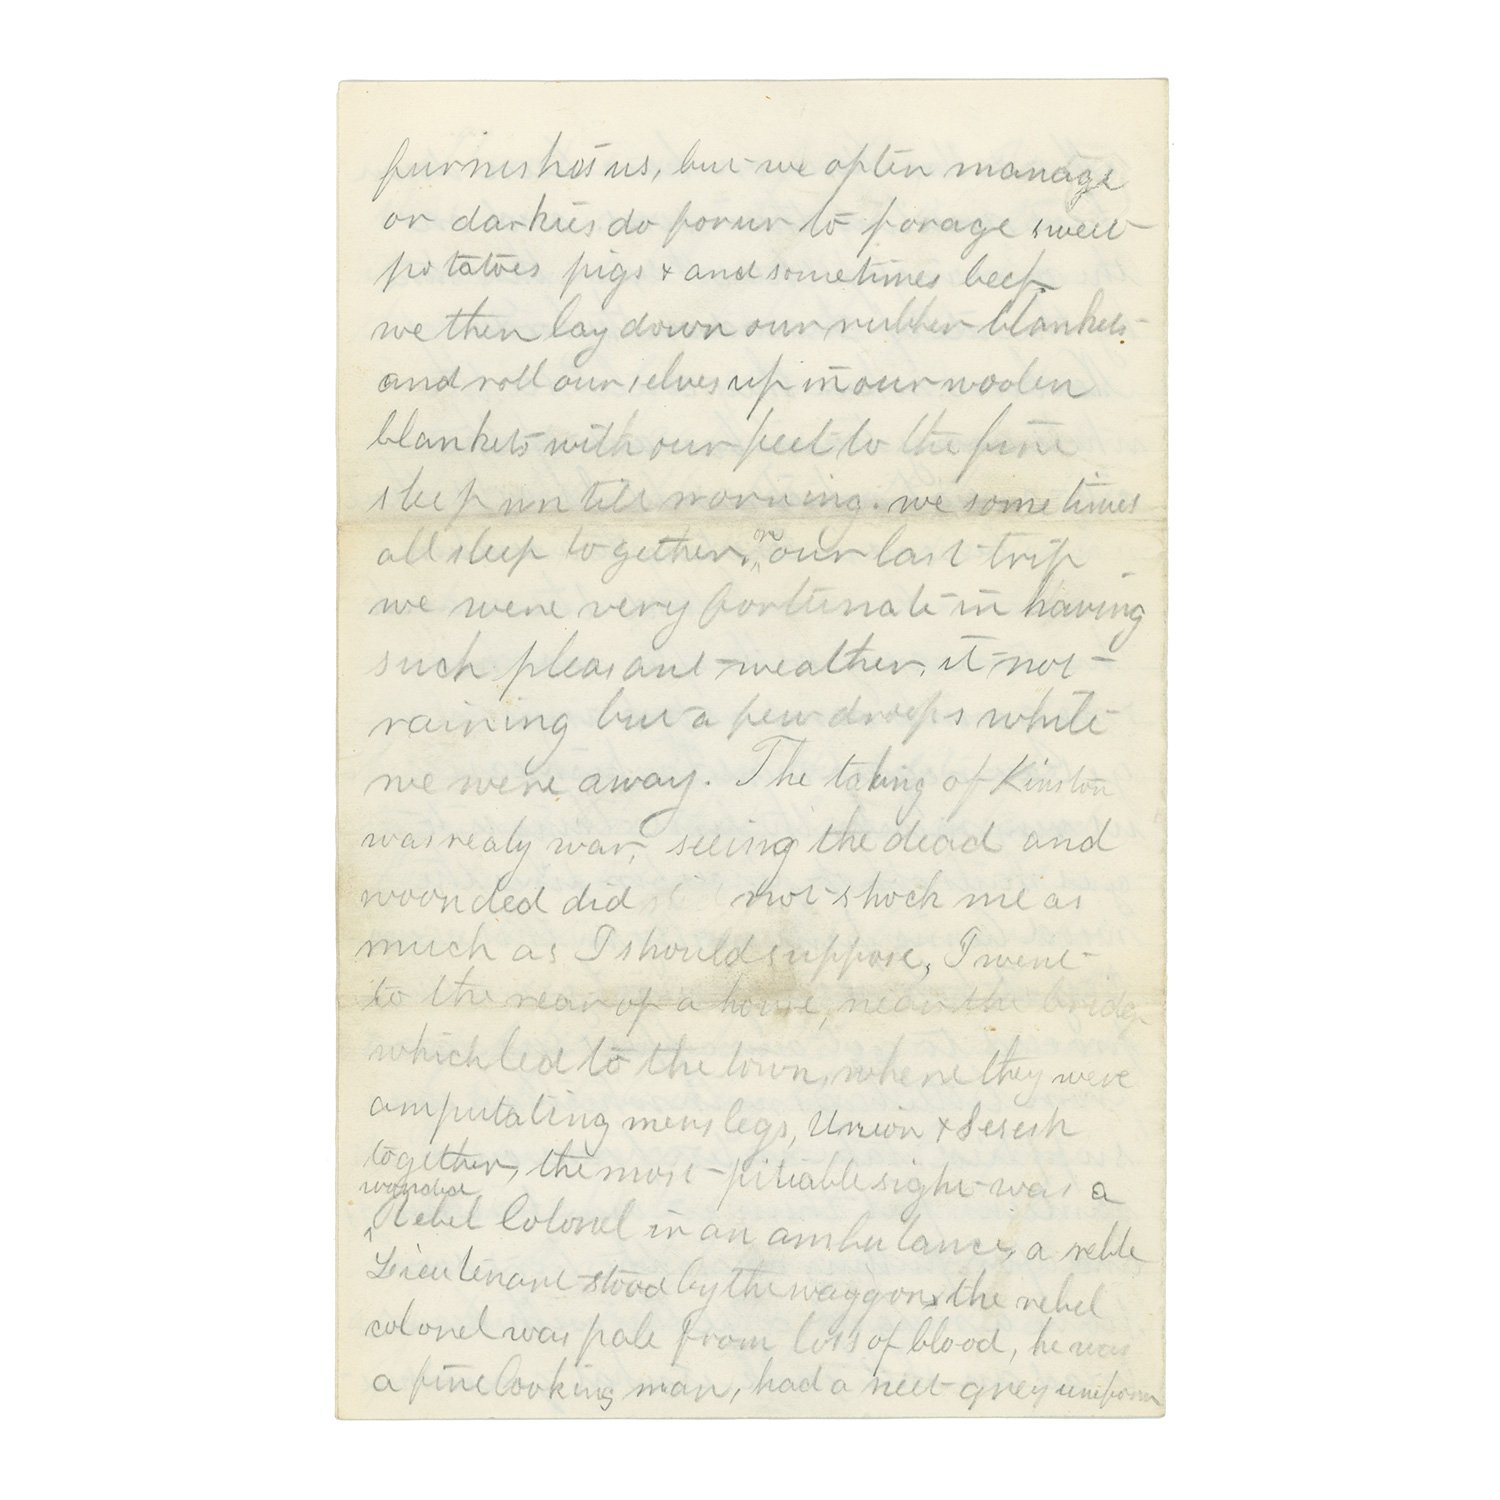 furnishes us, but we often manage
or darkies do for ur to forage sweet
potatoes pigs & and sometimes beef.
we then lay down our rubber blankets
and roll ourselves up in our woolen
blankets with our feet to the fire
sleep un till morning. we sometimes
all sleep together, on our last trip
we were very fortunate in having
such pleasant weather, it not
raining but a few drops while
we were away. The taking of Kinston
was realy war, seeing the dead and
woonded did not shock me as
much as I should suppose, I went
to the rear of a house, near the bridg
which led to the town, where they were
amputating mens legs, Union & Sesesh
together, the most pitiable sight was a
wounded
rebel Colonel in an ambulance, a reble
Lieutenant stood by the waggon, the rebel
colonel was pale from loss of blood, he was
a fine looking man, had a neet grey uniform